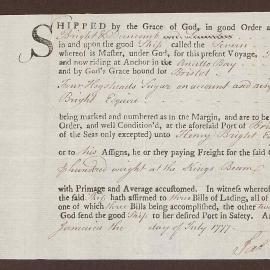 SHIPPED by the Grace of God, in good Order a
Bright &
in and upon the good Ship called the
whereis Master, under God, for this present Voyage,
and now riding at Anchor in the Bay
and by God's Grace bound for Bristol
Four Hogsheads Sugar on account and
Bright Esquire
being marked and numbered as in the Margin, and are to be
Order, and well Condition'd, at the aforesaid Port of Br
of the Seas only excepted) unto Henry Bright
or to his Assigns, he or they paying Freight for the said G
hundred weight at the Kings Beam
with Primage and Average accustomed. In witness whereof
the said Ship hath affirmed to three Bills of Lading, all of
one of which three Bills being accomplished, the other
God send the good Ship to her desired Port in Safety. A
Jamaica the day of July 1777